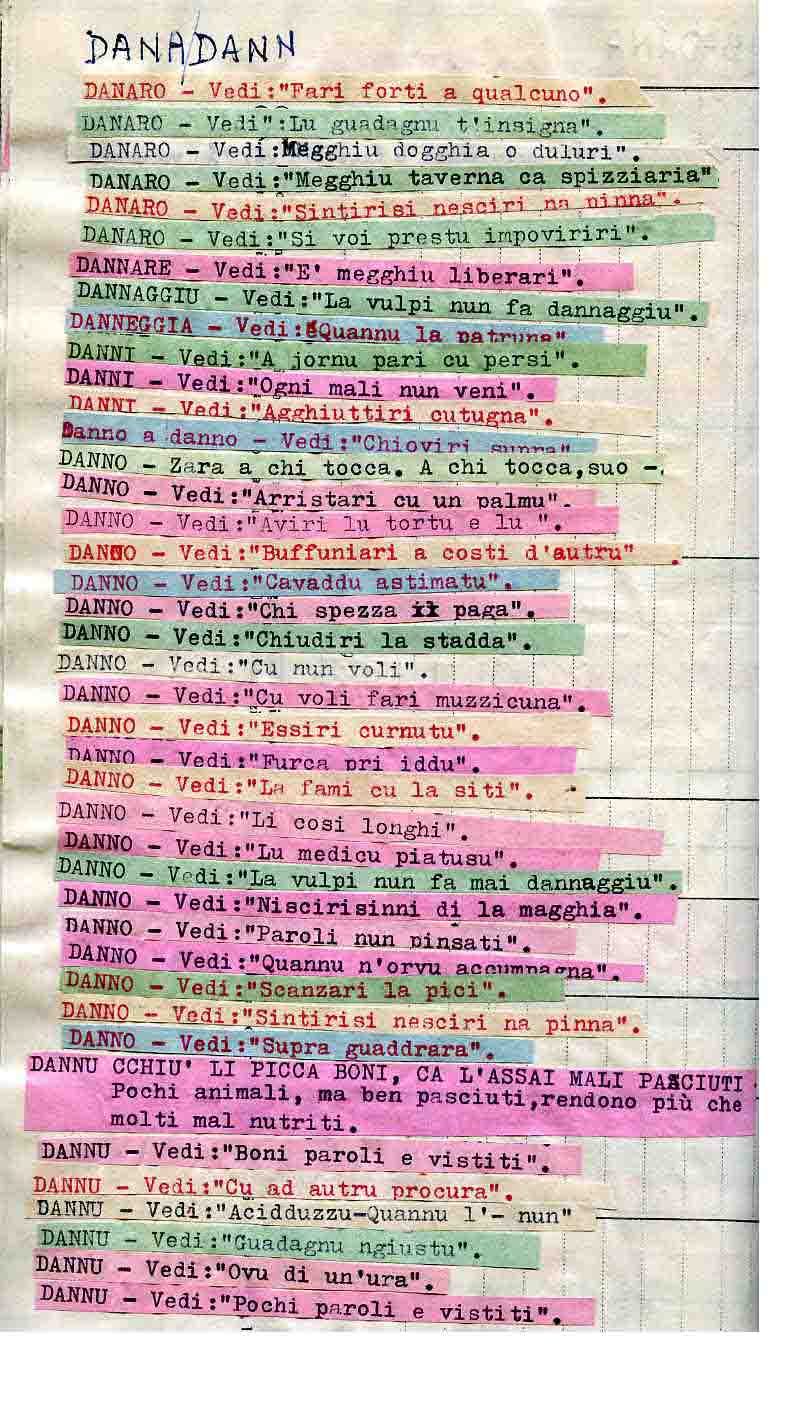 DANA/DANN
DANARO - Vedi:"Fari forti a qualcuno".
DANARO - Vedi":Lu guadagnu t'insigna".
DANARO - Vedi:Megghiu dogghia o duluri".
DANARO - Vedi:"Megghiu taverna ca spizziaria".
DANARO - Vedi:"Sintirisi nesciri na pinna".
DANARO - Vedi:"Si voi prestu impoviriri".
DANNARE - Vedi:"E' megghiu liberari".
DANNAGGIU - Vedi:"La vulpi nun fa dannaggiu".
DANNEGGIA - Vedi:"Quannu la patruna"
DANNI - Vedi:"A jornu pari cu persi".
DANNI - Vedi:"Ogni mali nun veni".
DANNI - Vedi:"Agghiuttiri cutugna".
Danno a danno - Vedi:"Chioviri supra"
DANNO - Zara a chi tocca. A chi tocca,suo -.
DANNO - Vedi:"Arristari cu un palmu".
DANNO - Vedi:"Aviri lu tortu e lu ".
DANNO - Vedi:"Buffuniari a costi d'autru" .
DANNO - Vedi:"Cavaddu astimatu".
DANNO - Vedi:"Chi spezza paga".
DANNO - Vedi:"Chiudiri la stadda".
DANNO - Vedi:"Cu nun voli".
DANNO - Vedi:"Cu voli fari muzzicuna".
DANNO - Vedi:"Essiri curnutu".
DANNO - Vedi:"Furca pri iddu".
DANNO - Vedi:"La fami cu la siti".
DANNO - Vedi:"Li cosi longhi".
DANNO - Vedi:"Lu medicu piatusu".
DANNO - Vedi:"La vulpi nun fa mai dannaggiu".
DANNO - Vedi:"Niscirisinni di la magghia".
DANNO - Vedi:"Paroli nun pinsati".
DANNO - Vedi:"Quannu n'orvu accumpagna".
DANNO - Vedi:"Scanzari la pici".
DANNO - Vedi:"Sintirisi nesciri na pinna".
DANNO - Vedi:"Supra guaddrara".
DANNU CCHIU' LI PICCA BONI, CA L'ASSAI MALI PASCIUTI.
Pochi animali, ma ben pasciuti,rendono più che
molti mal nutriti.
DANNU - Vedi:"Boni paroli e vistiti".
DANNU - Vedi:"Cu ad autru procura".
DANNU - Vedi:"Acidduzzu-Quannu l'- nun"
DANNU - Vedi:"Guadagnu ngiustu".
DANNU - Vedi:"Ovu di un'ura".
DANNU - Vedi:"Pochi paroli e vistiti".